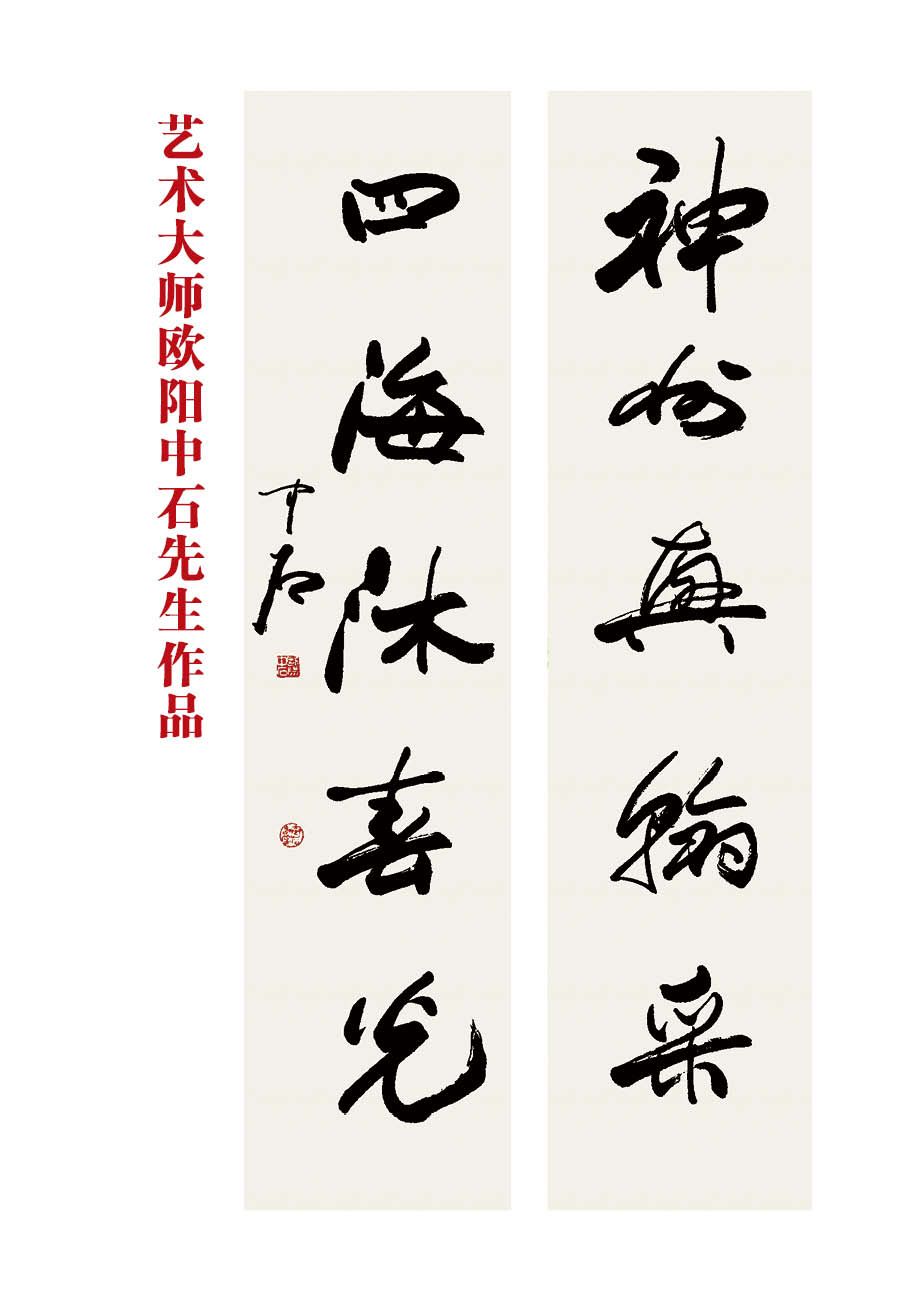 神州翰采
四海沐春光
中石
艺术大师欧阳中石先生作品